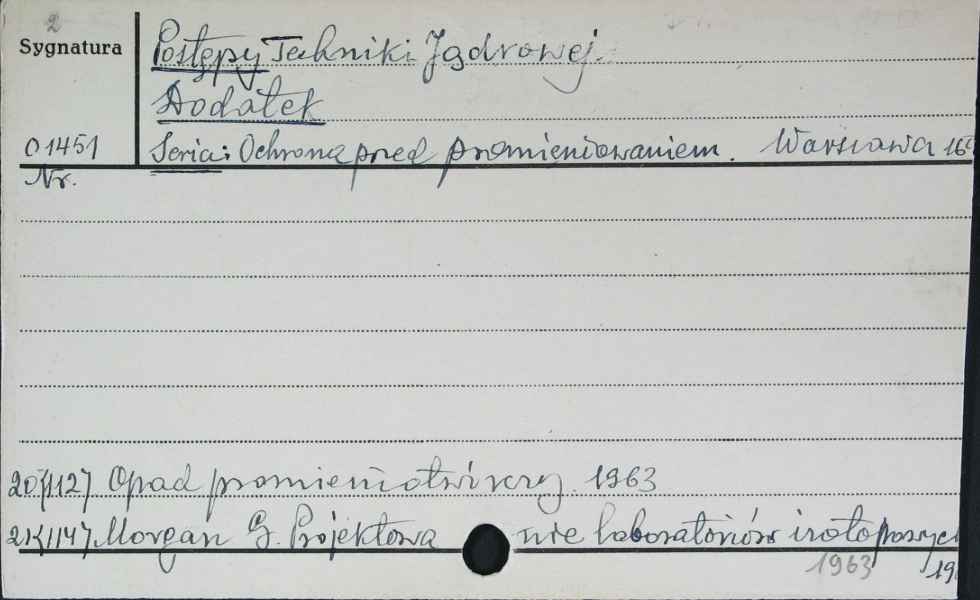 2
Sygnatura
Postępy Techniki Jądrowej.
Dodatek
O 1451
Seria: Ochrona przed promieniowaniem. Warszawa 16
Nr.
Opad promieniotwórczy. 1963
Morgan G. Projektowa nie laboratoriów izotopowyc
1963 19